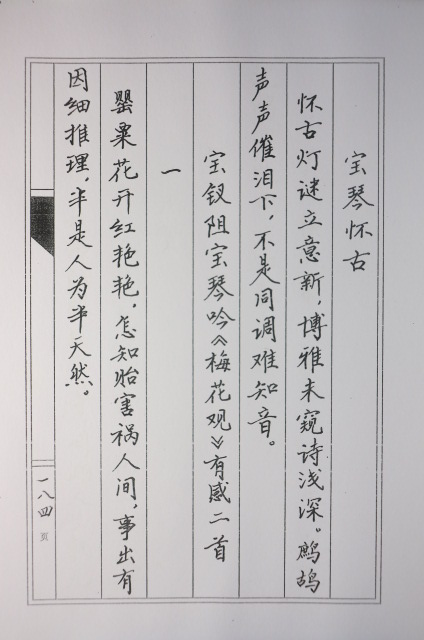 宝琴怀古
怀古灯谜立意新，博雅未窥诗浅深。鹧鸪
声声催泪下，不是同调难知音。
宝钗阻宝琴吟《梅花观》有感二首
一
罂粟花开红艳艳，怎知贻害祸人间，事出有
因细推理，半是人为半天然。
一八四页